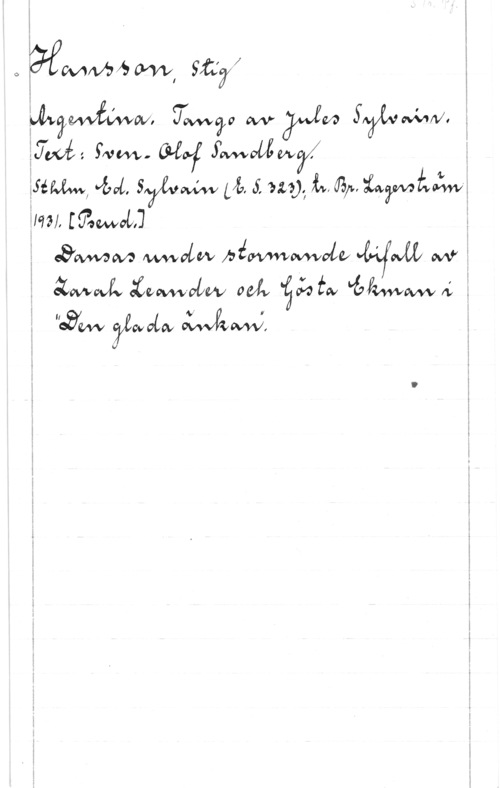 Hansson, Stig
Argentina. Tango av Jules Sylvain.
Text: Sven-Olof Sandberg.
Sthlm, Ed. Sylvain (E. S. 323); tr. Br. Lagerström
1931. [Pseud.]
Dansas under stormande bifall av
Zarah Leander och Gösta Ekman i
"Den glada änkan".